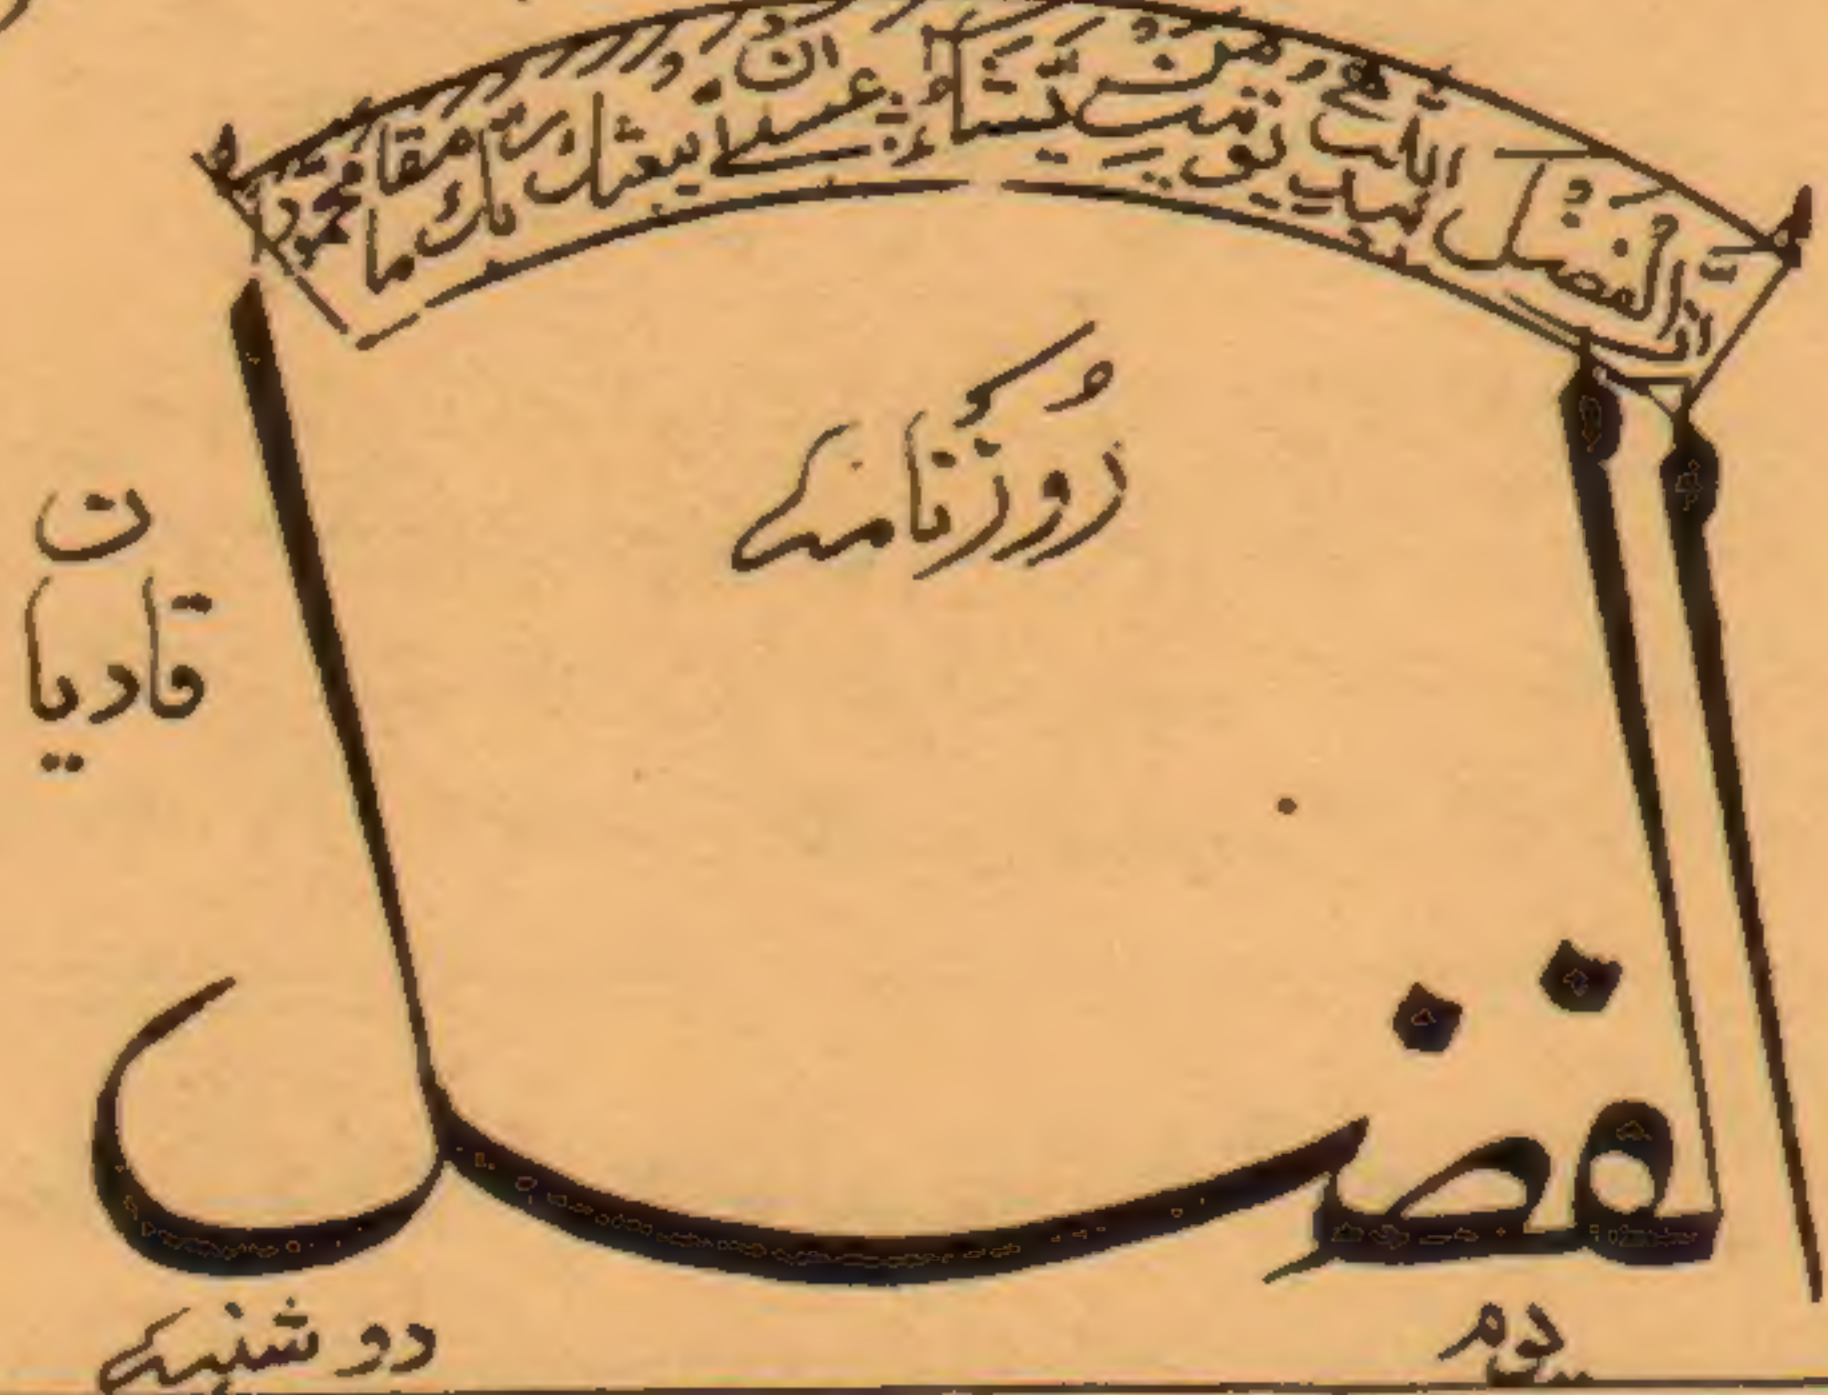 ان الفضل بید اللہ یؤتیہ من یشاء عسیٰ ان یبعثک ربک مقاما محمودا
روزنامہ
قادیان
الفضل
یوم
دو شنبہ